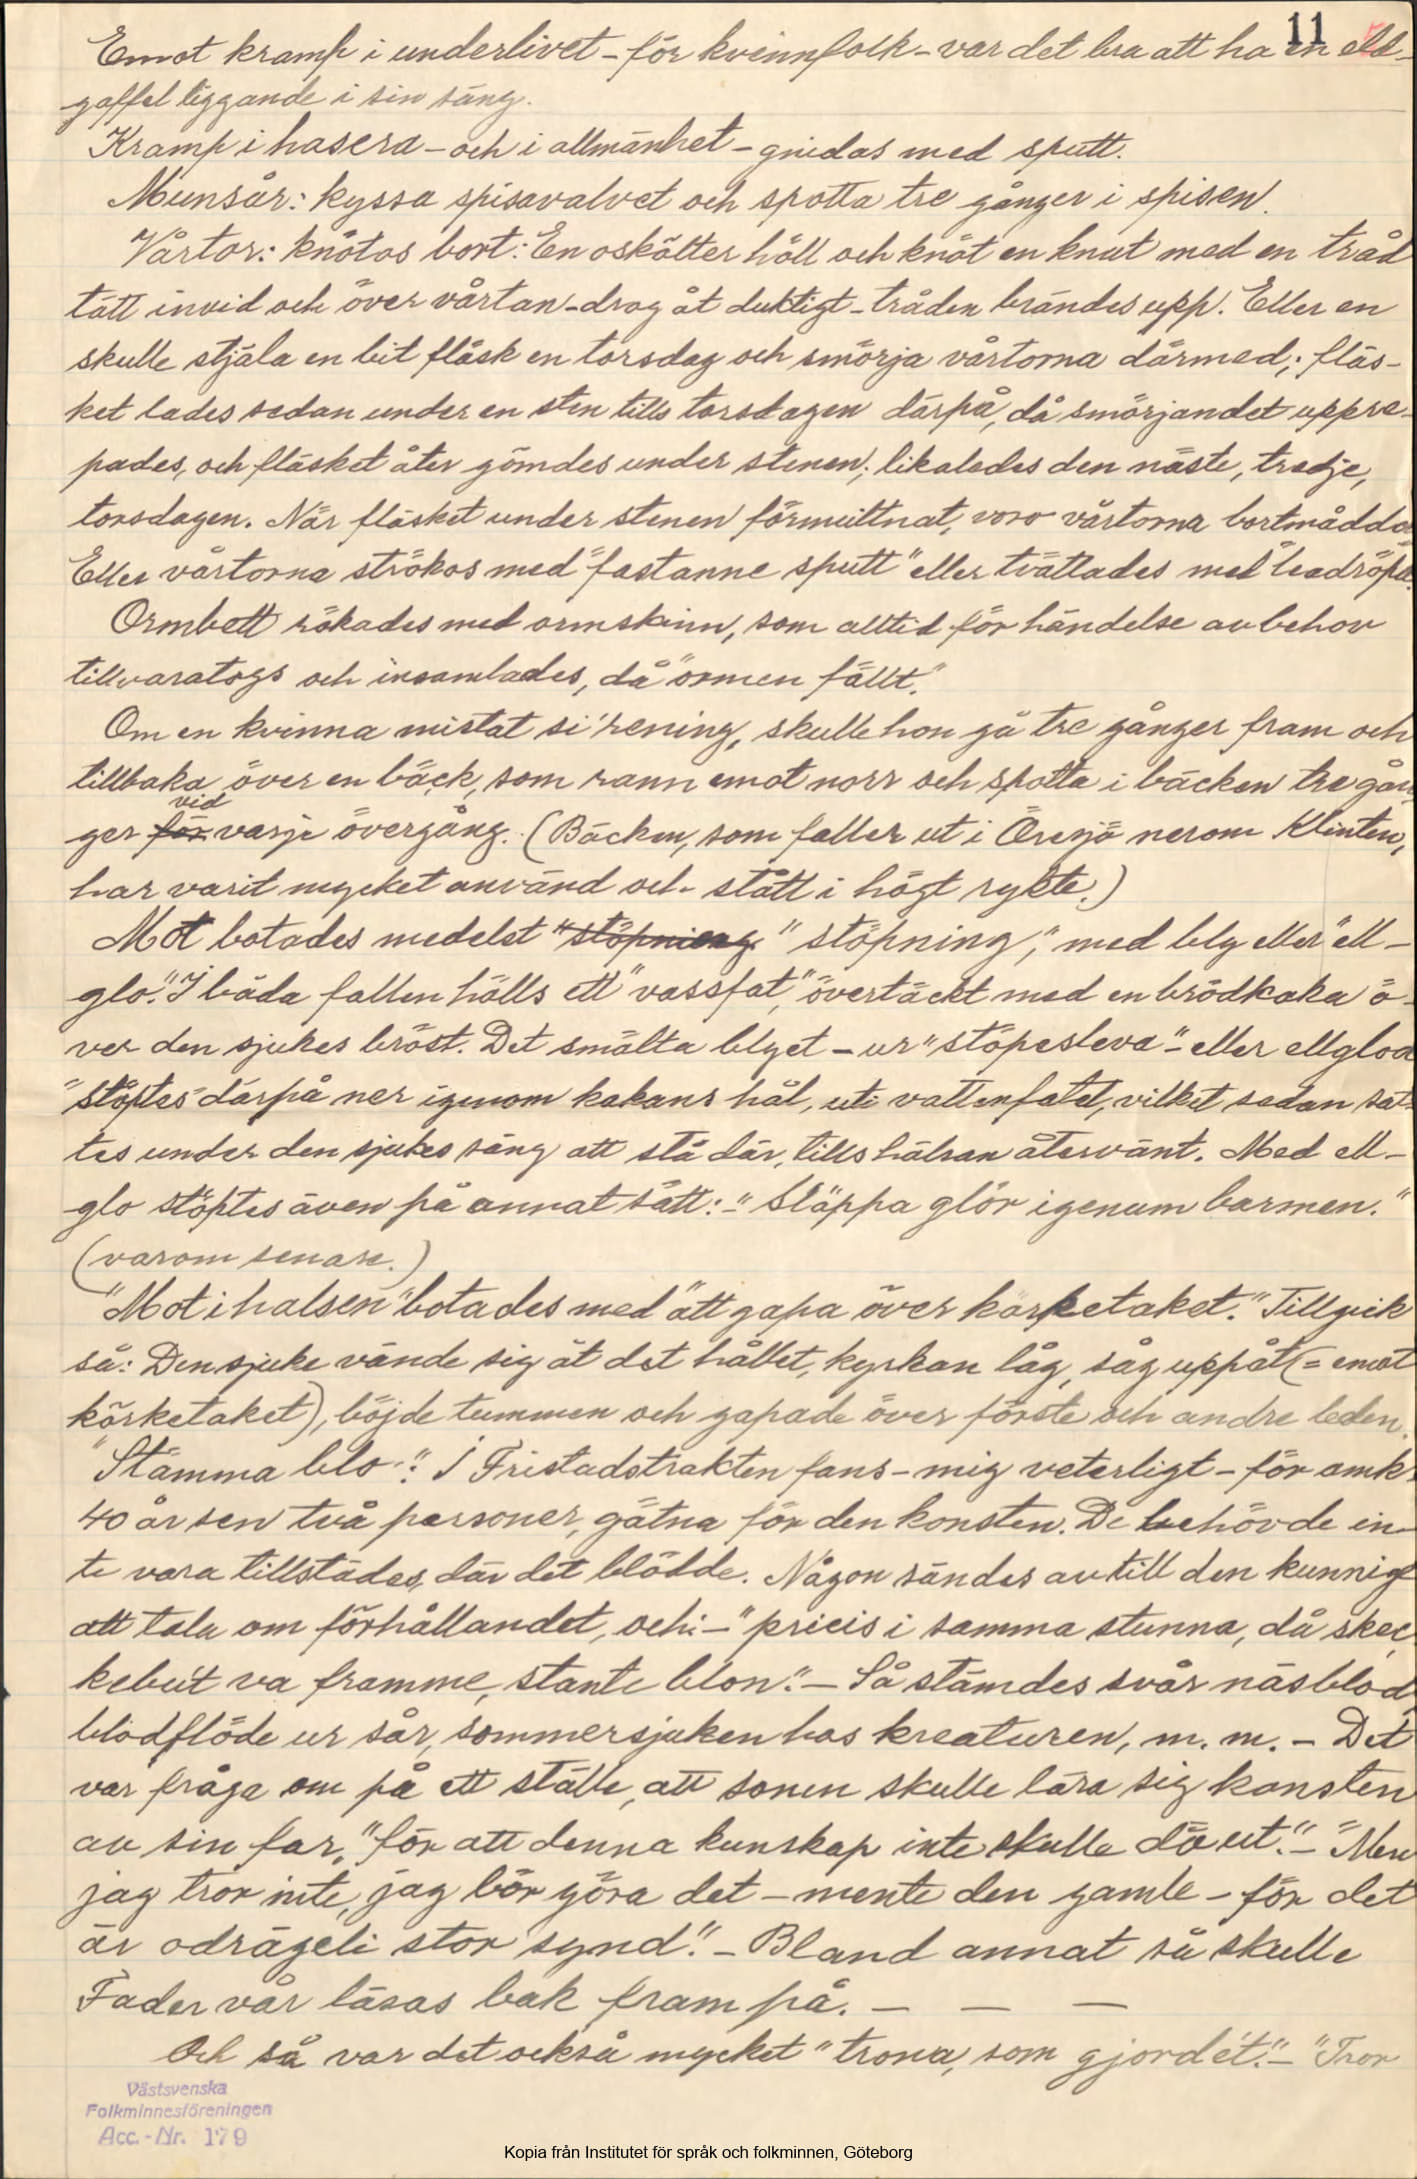 11
Emot kramp i underlivet – för kvinnfolk – var det bra att ha en eld-
gaffel liggande i sin säng.
Kramp i hasera – och i allmänhet – gnidas med sputt.
Munsår: kyssa spisavalvet och spotta tre gånger i spisen.
Vårtor: knötos bort: En oskölter höll och knöt en knut med en tråd
tätt invid och över vårtan – drog åt duktigt – tråden brändes upp. Eller en
skulle stjäla en bit fläsk en torsdag och smörja vårtorna därmed; fläs-
ket lades sedan under en sten tills torsdagen därpå, då smörjandet uppre-
pades, och fläsket åter gömdes under stenen; likaledes den näste, tredje,
torsdagen. När fläsket under stenen förmultnat, voro vårtorna bortnådda
Eller vårtorna strökos med "fastanne sputt" eller tvättades med "leadröpa".
Ormbett rökades med ormskinn, som alltid för händelse av behov
tillvaratogs och insamlades, då "ormen fällt."
Om en kvinna mistat si' rening, skulle hon gå tre gånger fram och
tillbaka över en bäck, som rann emot norr och spotta i bäcken tre gån-
ger för vid varje övergång. (Bäcken, som faller ut i Öresjö nerom Klinten,
har varit mycket använd och stått i högt rykte.)
Mot botades medelst "stöpning" "stöpning," med bly eller "ell-
glo." I båda fallen hölls ett "vassfat," övertäckt med en brödkaka ö-
ver den sjukes bröst. Det smälta blyet – ur "stöpesleva" – eller ellgloa
"stöptes" därpå ner igenom kakans hål, uti vattenfatet, vilket sedan sat-
tes under den sjukes säng att stå där, tills hälsan återvänt. Med ell-
glo stöptes även på annat sätt: – "Släppa glör igenum barmen."
(varom senare.)
"Mot i halsen" botades med "att gapa över körketaket." Tillgick
så: Den sjuke vände sig åt det hållet, kyrkan låg, såg uppåt (= emot
körketaket), böjde tummen och gapade över förste och andre leden.
"Stämma blo": I Fristadstrakten fans – mig veterligt – för omk.
40 år sen två personer, gätna för den konsten. De behövde in-
te vara tillstädes, där det blödde. Någon sändes av till den kunnige
att tala om förhållandet, och: – "pricis i samma stunna, då skec-
kebut va framme, stante blon." – Så stämdes svår näsblod,
blodflöde ur sår, sommersjuken hos kreaturen, m. m. – Det
var fråga om på ett ställe, att sonen skulle lära sig konsten
av sin far, "för att denna kunskap inte skulle dö ut." – "Men
jag tror inte, jag bör göra det – mente den gamle – för det
är odrägeli stor synd." – Bland annat så skulle
Fader vår läsas bak fram på. – – –
Och så var det också mycket "trona, som gjordét." – "Tror
Västsvenska
Folkminnesföreningen
Acc.-Nr. 179
Kopia från Institutet för språk och folkminnen, Göteborg